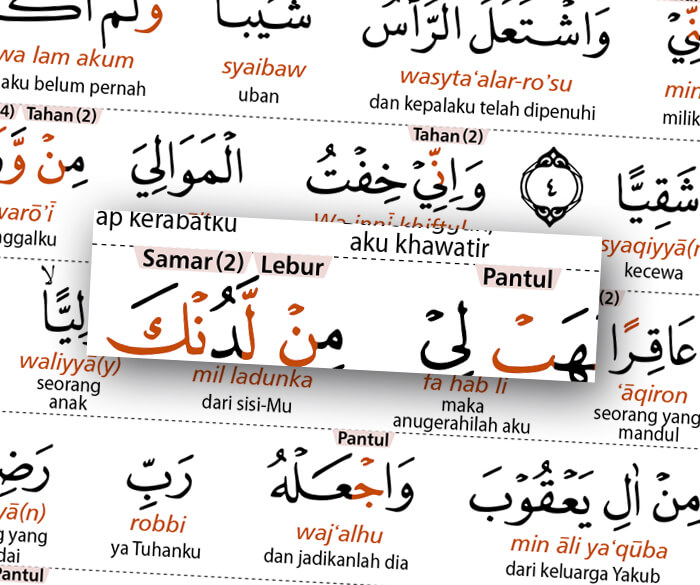 وَلَمْ اَكُ شَيْبًا وَاشْتَعَلَ الرَّأْسُ
wa lam akum syaibaw wasyta‘alar-ro’su min
aku belum pernah uban dan kepalaku telah dipenuhi milik
4) Tahan (2) Tahan (2)
مِنْ وَّ الْمَوَالِيَ وَاِنِّيْ خِفْتُ ٤ شَقِيًّا
warō'ī Wa innī khiftul syaqiyyā(n
ggalku kecewa
ap kerabatku aku khawatir
Samar (2) Lebur Pantul (2)
لِيًّاۙ مِنْ لَّدُنْكَ هَبْ لِيْ عَاقِرًا
waliyyā(y) mil ladunka fa hab lī ‘āqiron
seorang anak dari sisi-Mu maka anugerahilah aku seorang yang mandul
Pantul
رَضِ رَبِّ وَاجْعَلْهُ مِنْ اٰلِ يَعْقُوْبَ
yā(n) robbi waj‘alhu min āli ya‘qūba
g yang dai ya Tuhanku dan jadikanlah dia dari keluarga Yakub
Pantul